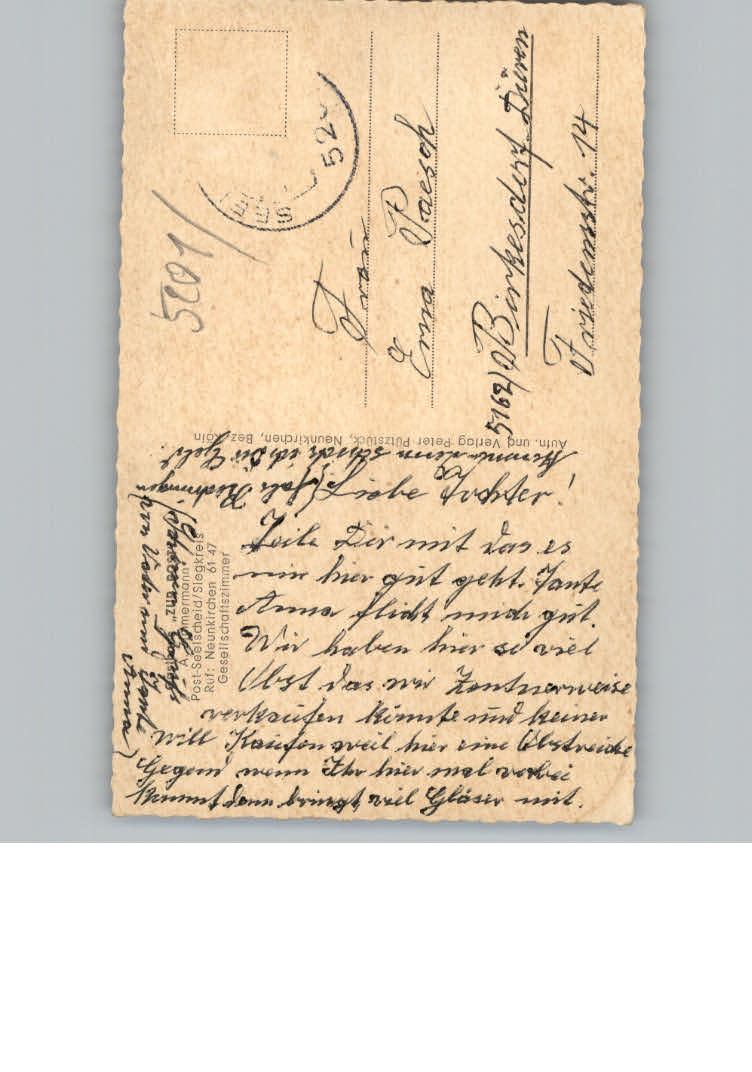 5201
SEE
520
Frau
Erna Paesch
5162) Birkesdorf Düren
Friedensstr. 14
Aufn. und Verlag Peter Pützstück, Neunkirchen, Bez. Köln
A. Zimmermann
Post-Seelscheid/Siegkreis
Ruf: Neunkirchen 61 47
Gesellschaftszimmer
Liebe Tochter!
Teile Dir mit das es
mir hier gut geht. Tante
Anna auch gut.
Wir haben hier so viel
Obst das wir Zentnerweise
verkaufen könnte und keiner
will Kaufen weil hier eine Obstreiche
Gegend wenn Ihr hier mal vorbei
kommt dann bringt viel Gläser mit.
komme dann schick ich Dir Geld.
Grüße
von Vater und Tante
Anna